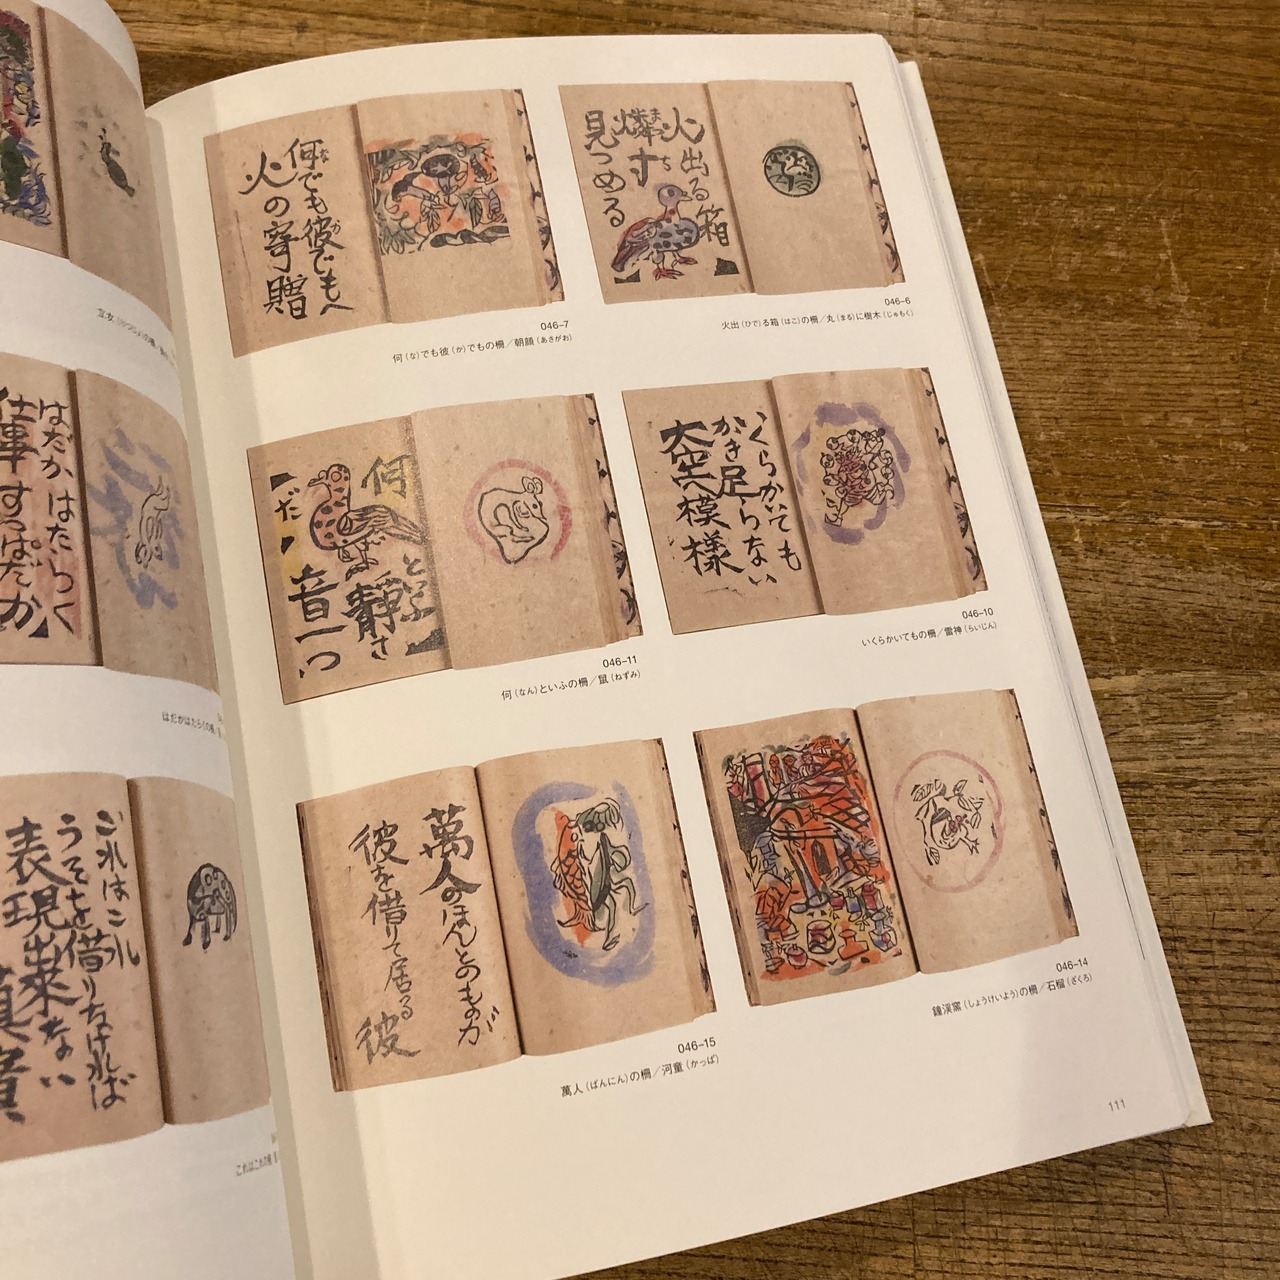 はだかはたらく
仕事すっぱだか
はだかはたらくの柵／
これはこれ
うそを借りなければ
表現出来ない
真實
これはこれの柵
火出る箱
燐寸
まっち
見つめる
046-6
火出（ひで）る箱（はこ）の柵／丸（まる）に樹木（じゅもく）
何でも彼でもへ
な
か
火の寄贈
046-7
何（な）でも彼（か）でもの柵／朝顔（あさがお）
いくらかいても
かき足らない
大空
模様
046-10
いくらかいてもの柵／雷神（らいじん）
何
といふ
静さ
音一つ
だ
046-11
何（なん）といふの柵／鼠（ねずみ）
046-14
鐘渓窯（しょうけいよう）の柵／石榴（ざくろ）
萬人のほんとのものが
彼を借りて居る
彼
046-15
萬人（ばんにん）の柵／河童（かっぱ）
111